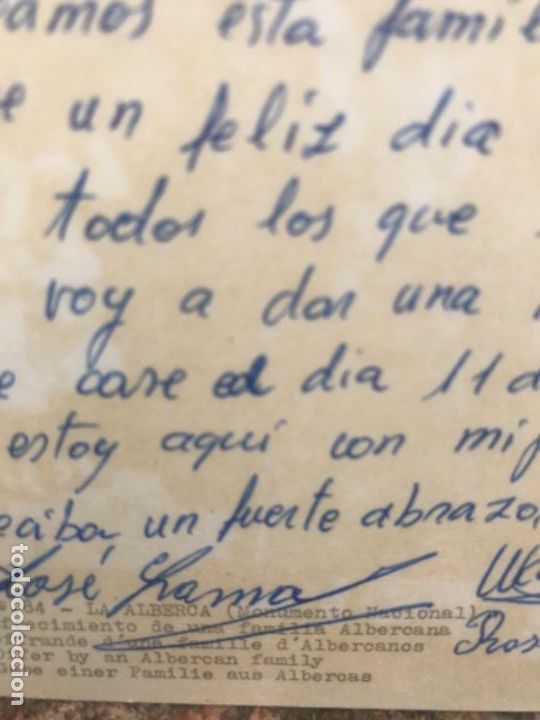 eamos esta famil
e un feliz dia
todos los que
voy a dar una
e case el dia 11 d
estoy aquí con mi
eciba, un fuerte abrazo,
José Lama
84 - LA ALBERCA (Monumento Nacional)
recimiento de una familia Albercana
rande d'une famille d'Albercanos
er by an Albercan family
abe einer Familie aus Albercas
todocoleccion